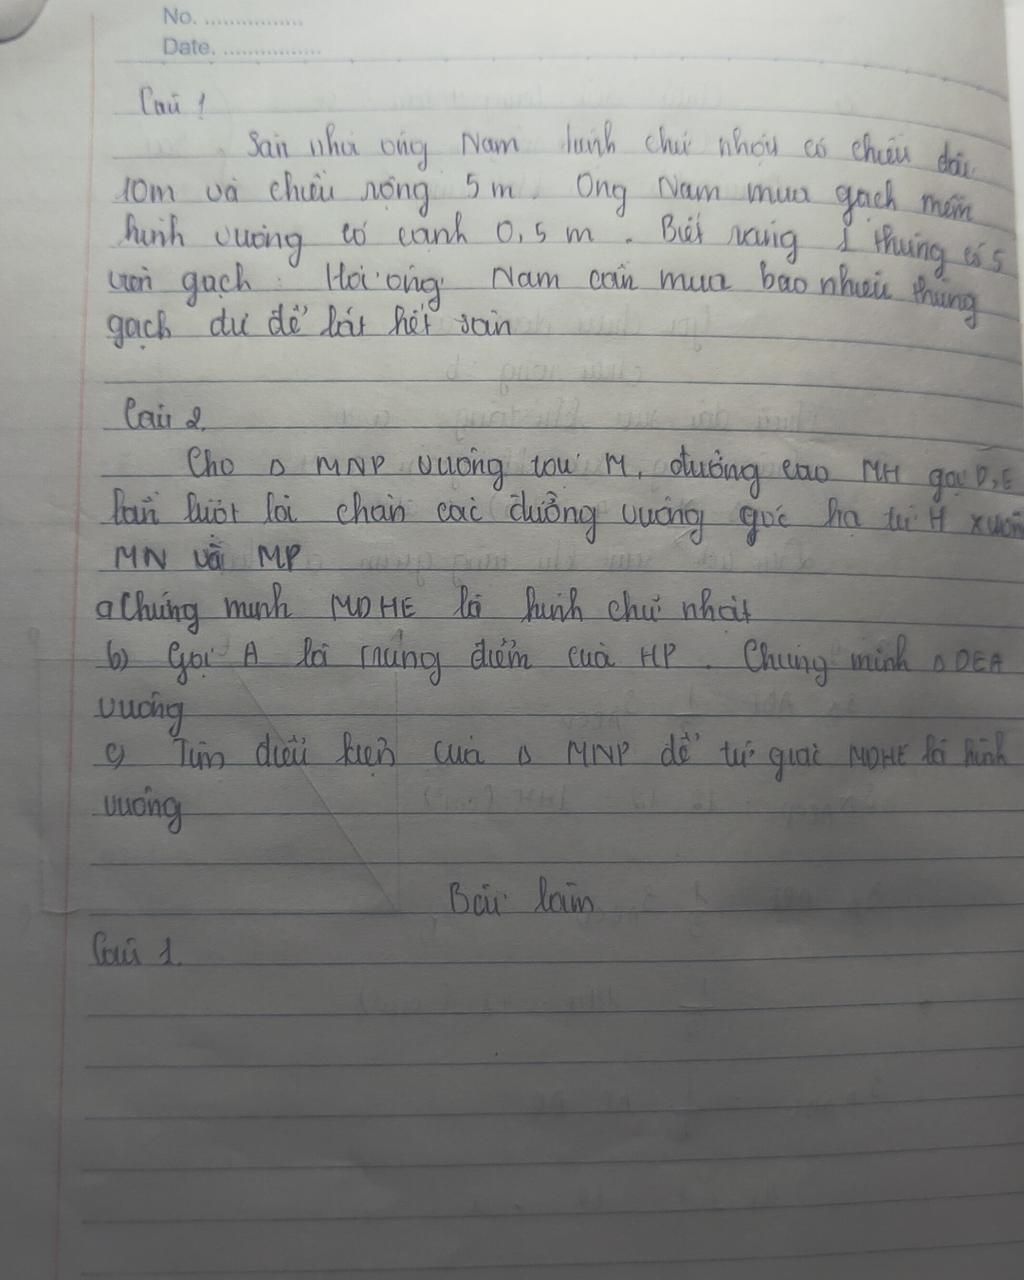 No. ................
Date. ................
Câu 1
Sân nhà ông Nam hình chữ nhật có chiều dài
10m và chiều rộng 5 m. Ông Nam mua gạch men
hình vuông có cạnh 0,5 m. Biết rằng 1 thùng có 5
viên gạch. Hỏi ông Nam cần mua bao nhiêu thùng
gạch dư để lát hết sân
Câu 2.
Cho Δ MNP vuông tại M, đường cao MH gọi D,E
lần lượt là chân các đường vuông góc hạ từ H xuống
MN và MP
a Chứng minh MDHE là hình chữ nhật
b) Gọi A là trung điểm của HP. Chứng minh Δ DEA
vuông
c) Tìm điều kiện của Δ MNP để tứ giác MDHE là hình
vuông
Bài làm
Câu 1.